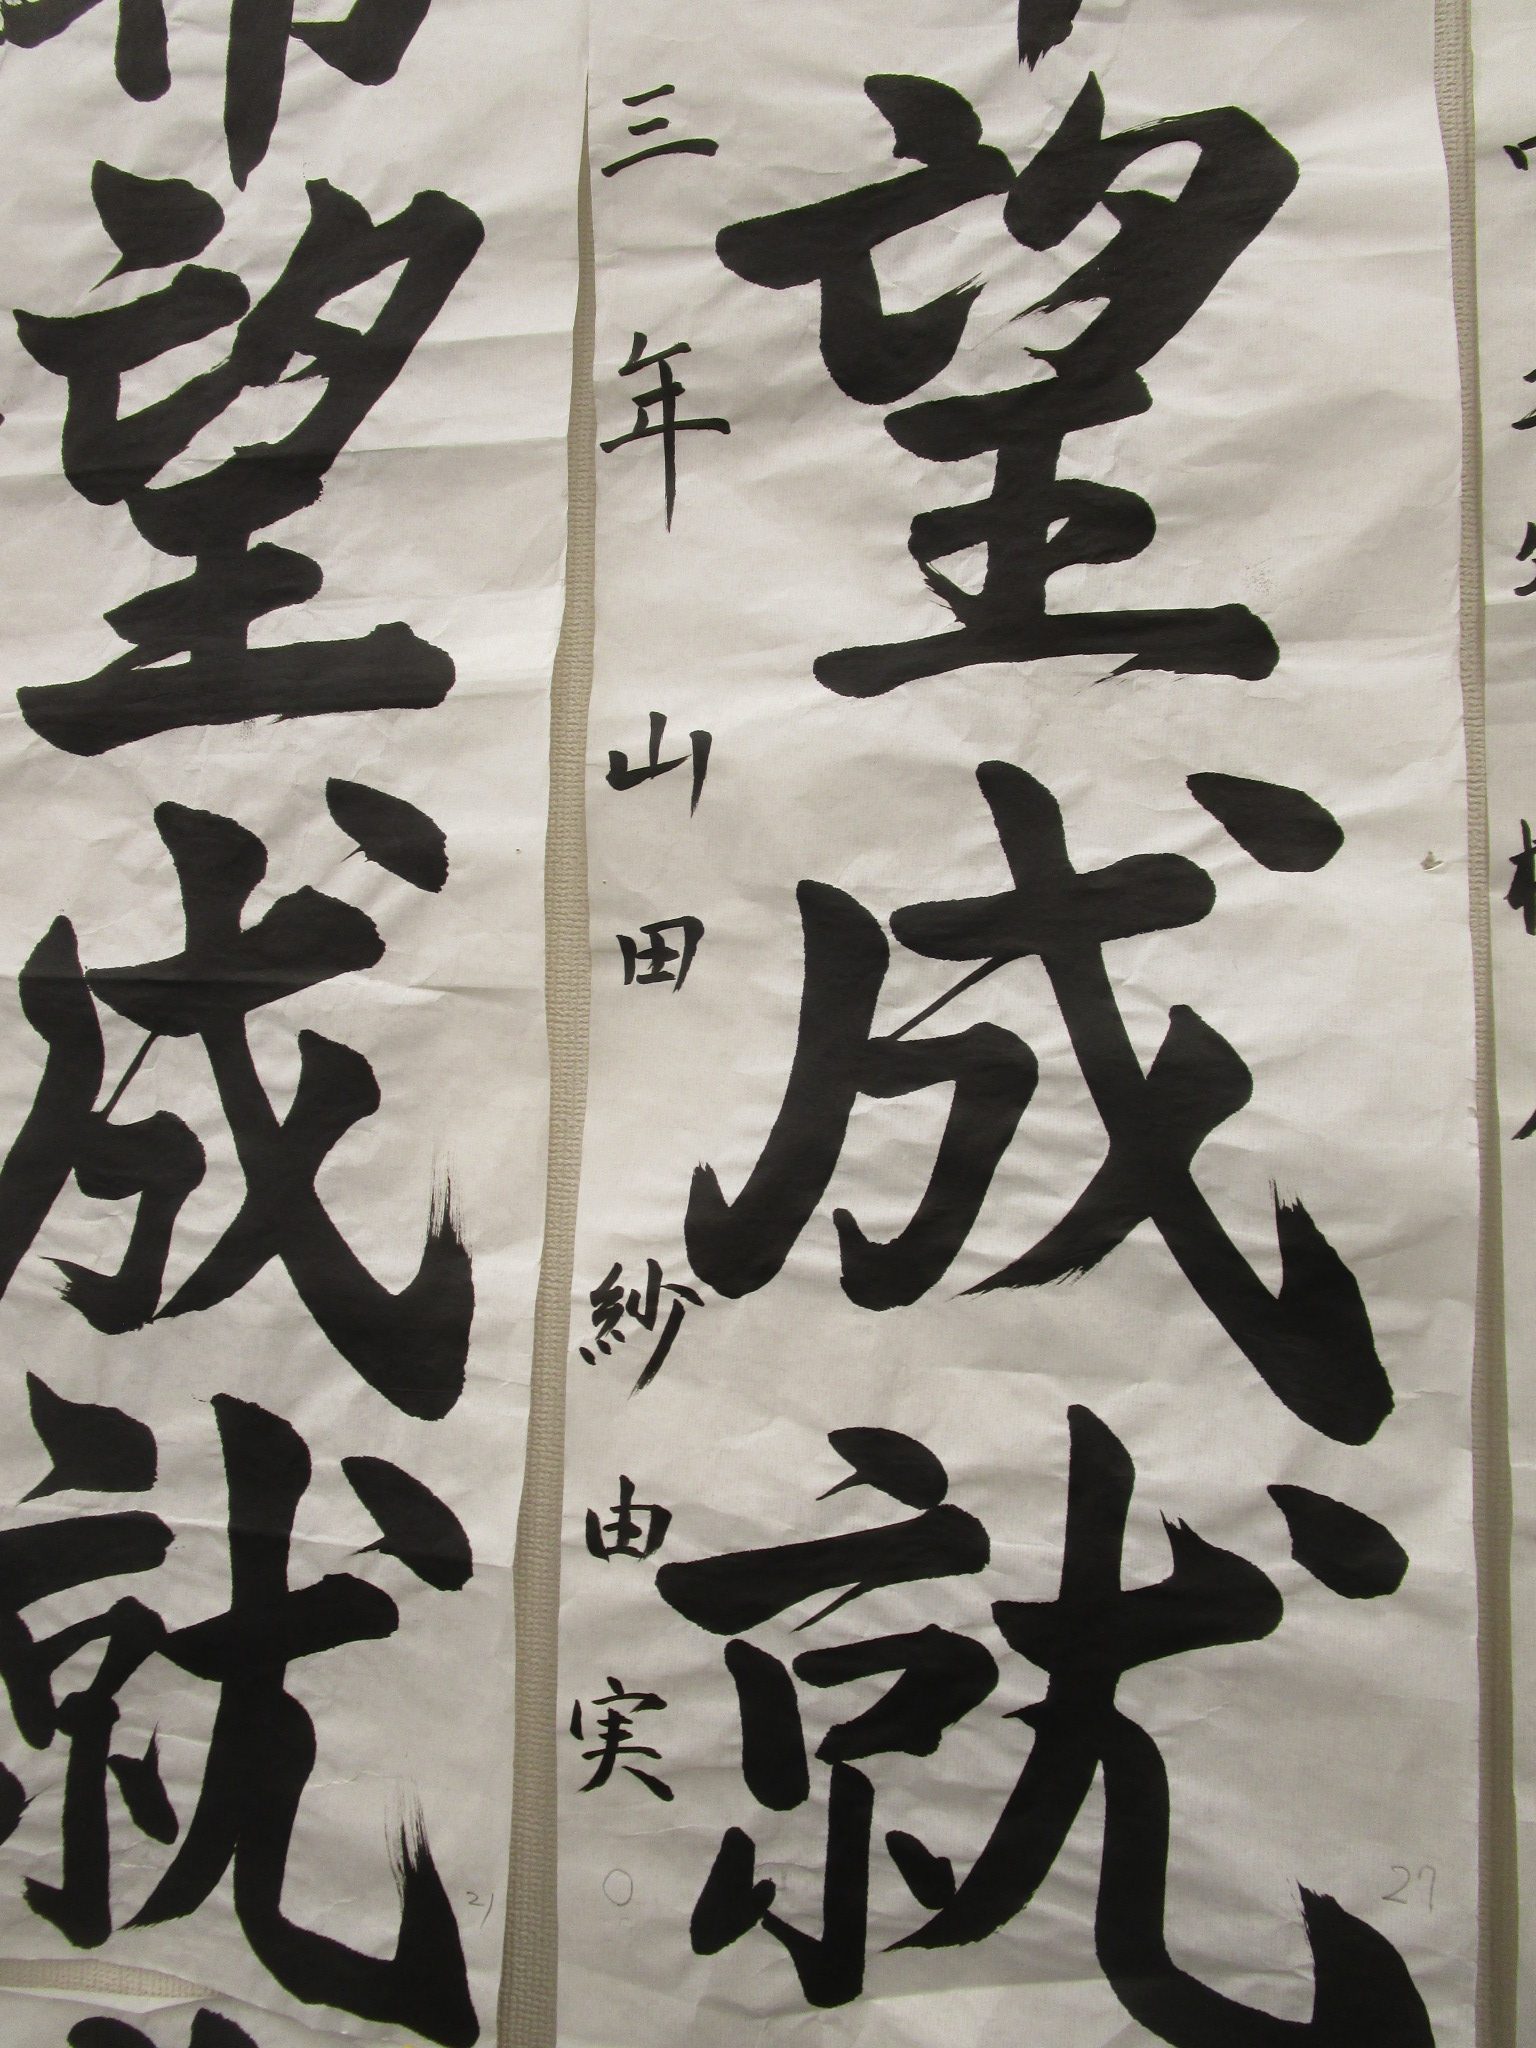 望成就
三年 山田 紗由実
27
○
希望成就
21